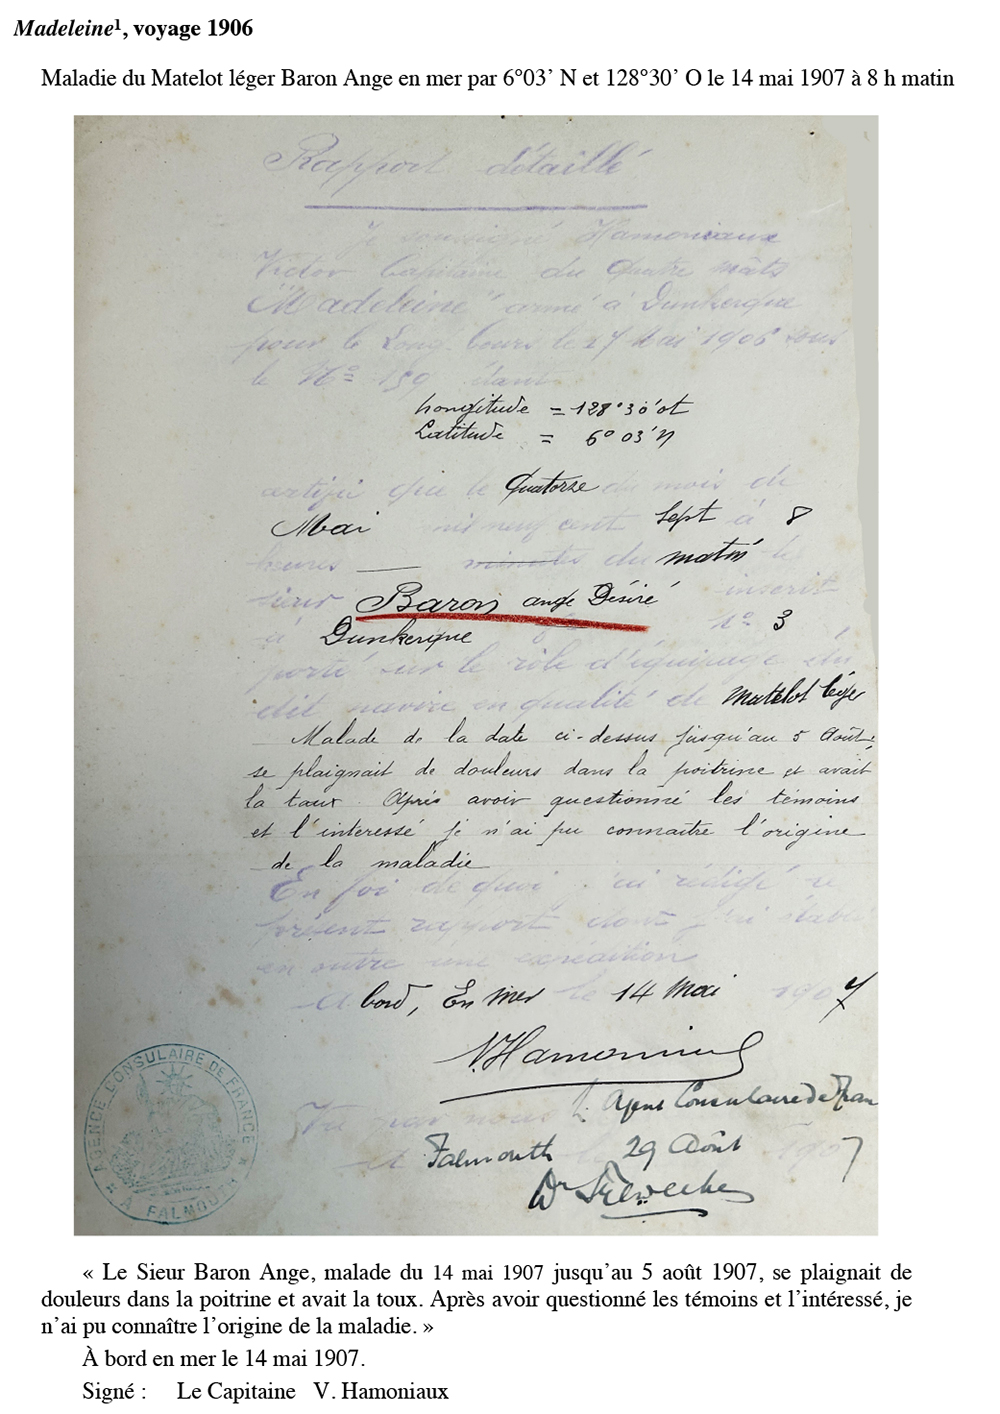 Madeleine¹, voyage 1906
Maladie du Matelot léger Baron Ange en mer par 6°03’ N et 128°30’ O le 14 mai 1907 à 8 h matin
Rapport détaillé
Je soussigné Hamoniaux
Victor Capitaine du Quatre mâts
"Madeleine" armé à Dunkerque
pour le Long-Cours le 27 Mai 1906 sous
le No 159 étant
Longitude = 128°30'ot
Latitude = 6° 03'N
certifie que le Quatorze du mois de
Mai mil neuf cent Sept à 8
heures — minutes du matin le
sieur Baron ange Désiré inscrit
à Dunkerque no 3
porté sur le rôle d'équipage du
dit navire en qualité de Matelot léger
Malade de la date ci-dessus jusqu'au 5 Août,
se plaignait de douleurs dans la poitrine et avait
la toux. Après avoir questionné les témoins
et l'intéressé je n'ai pu connaitre l'origine
de la maladie
En foi de quoi j'ai rédigé le
présent rapport dont j'ai établi
en outre une expédition
A bord, En mer le 14 Mai 1907
V. Hamoniaux
Vu par nous L. Agent Consulaire de Fran
et Falmouth le 29 Août 1907
AGENCE CONSULAIRE DE FRANCE
A FALMOUTH
« Le Sieur Baron Ange, malade du 14 mai 1907 jusqu’au 5 août 1907, se plaignait de
douleurs dans la poitrine et avait la toux. Après avoir questionné les témoins et l’intéressé, je
n’ai pu connaître l’origine de la maladie. »
À bord en mer le 14 mai 1907.
Signé : Le Capitaine V. Hamoniaux